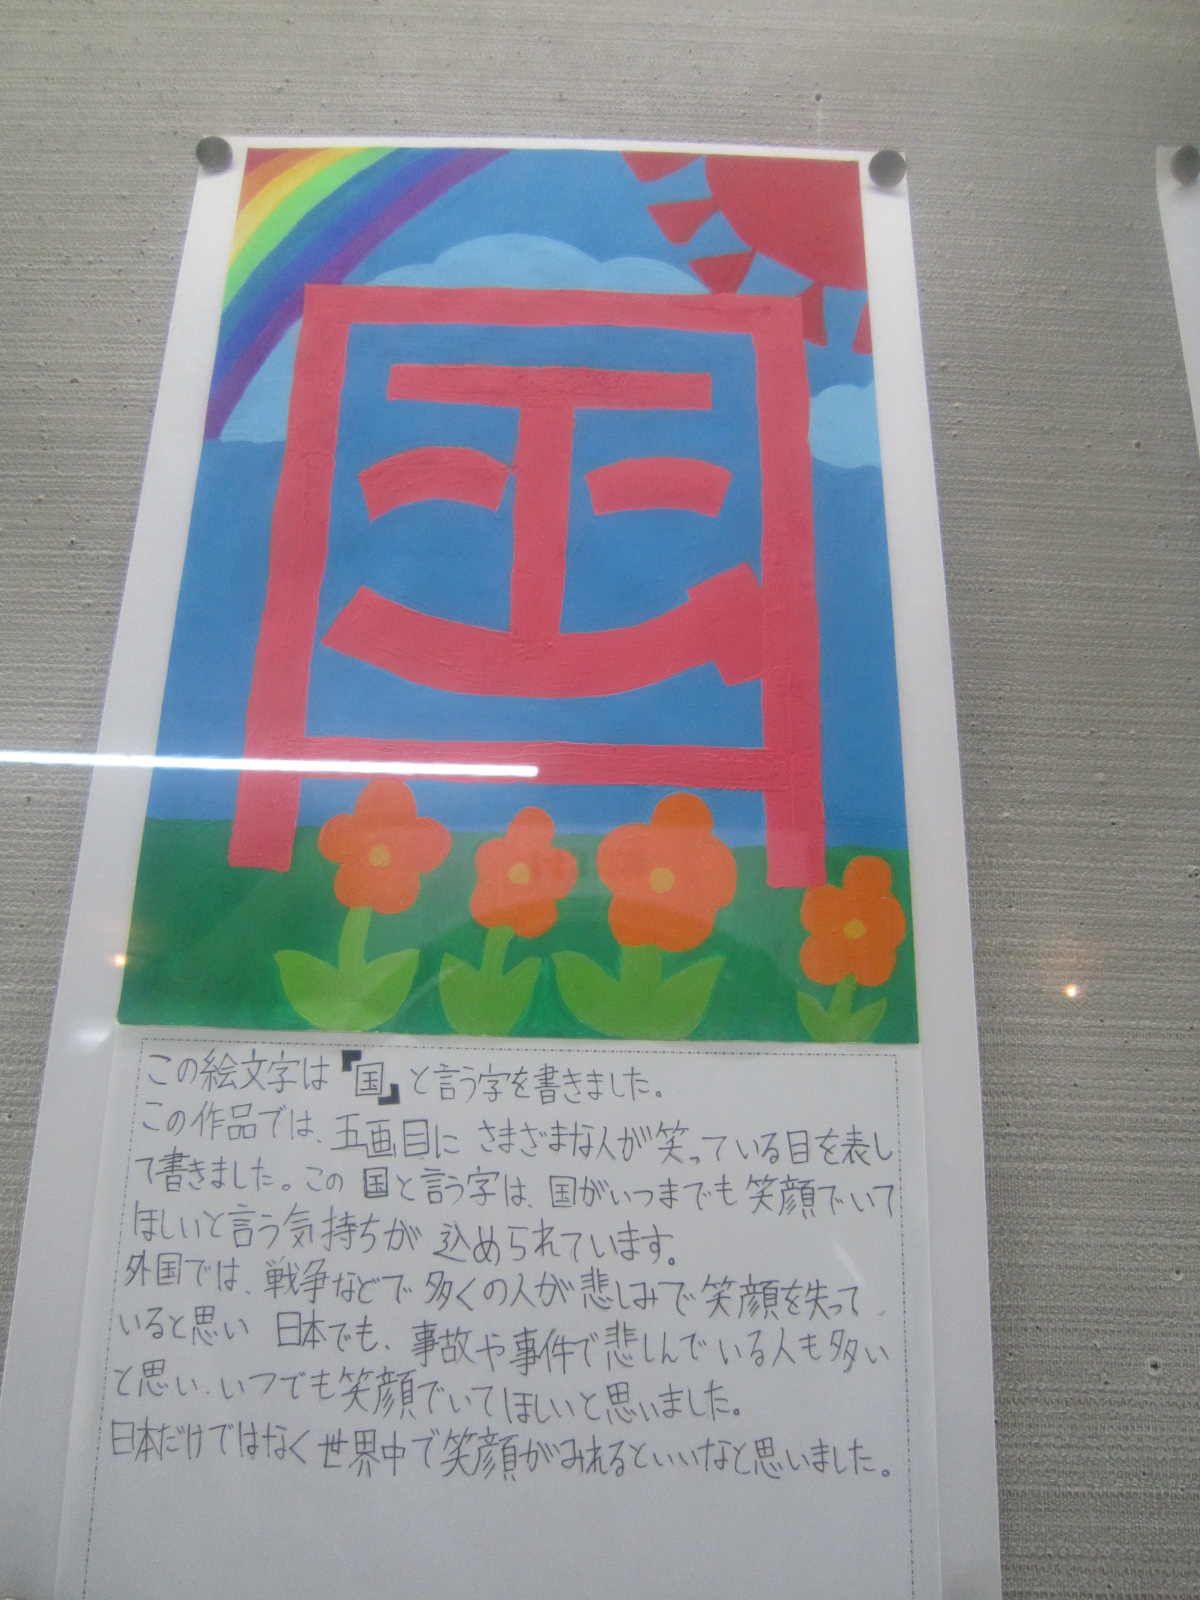 国
この絵文字は『国』と言う字を書きました。
この作品では、五画目にさまざまな人が笑っている目を表し
て書きました。この国と言う字は、国がいつまでも笑顔でいて
ほしいと言う気持ちが込められています。
外国では、戦争などで多くの人が悲しみで笑顔を失って
いると思い 日本でも、事故や事件で悲しんでいる人も多い
と思い、いつでも笑顔でいてほしいと思いました。
日本だけではなく世界中で笑顔がみれるといいなと思いました。